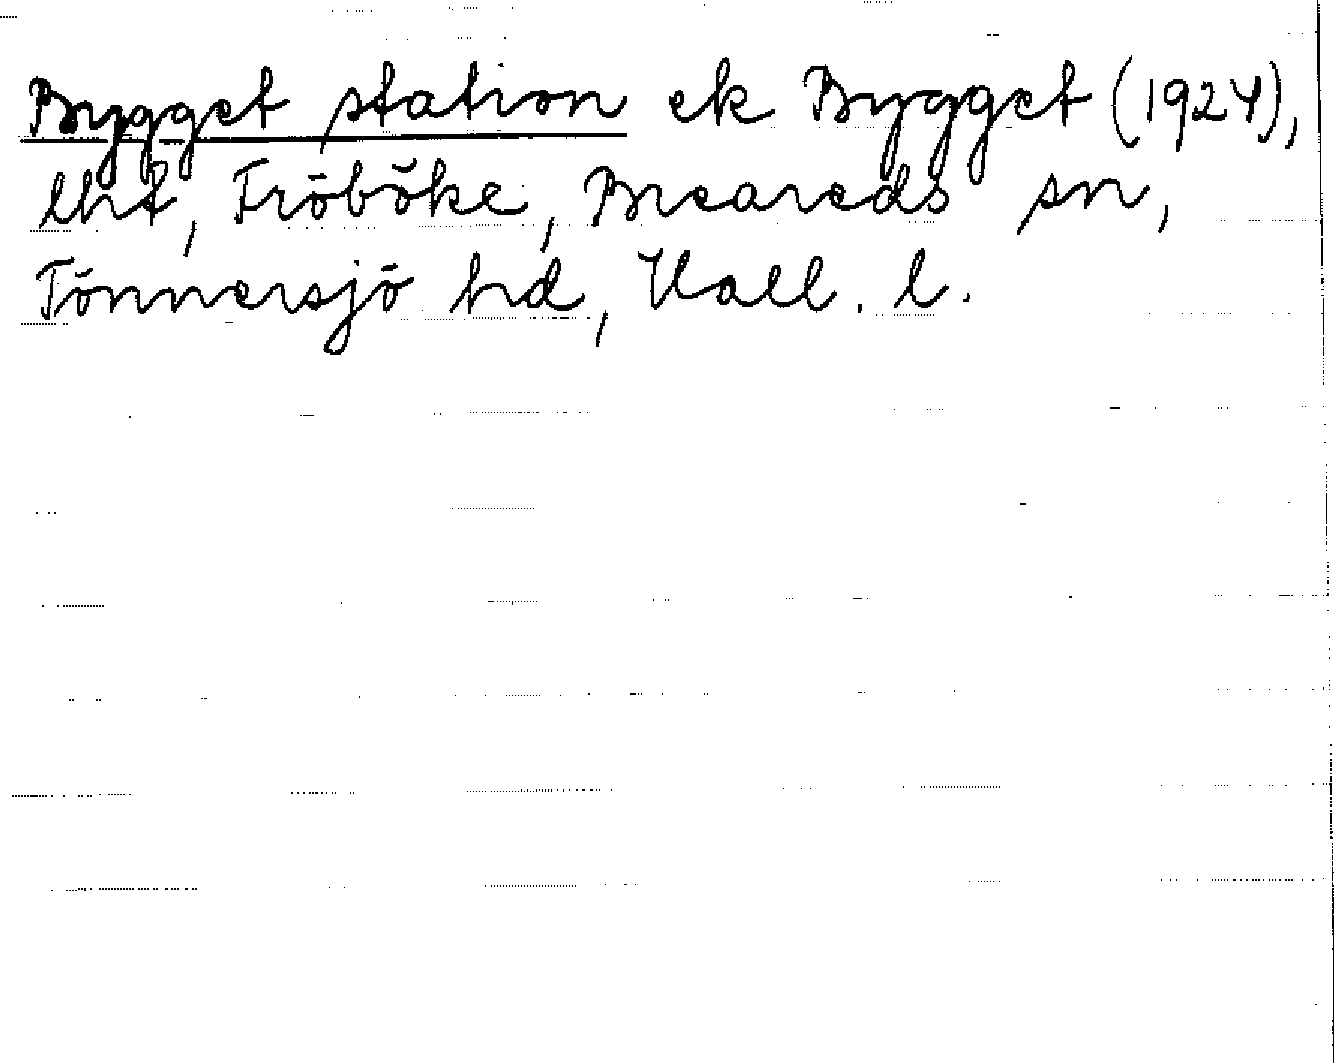 Bygget station ek Bygget (1924),
lht, Fröböke, Breareds sn,
Tönnersjö hd, Hall. l.